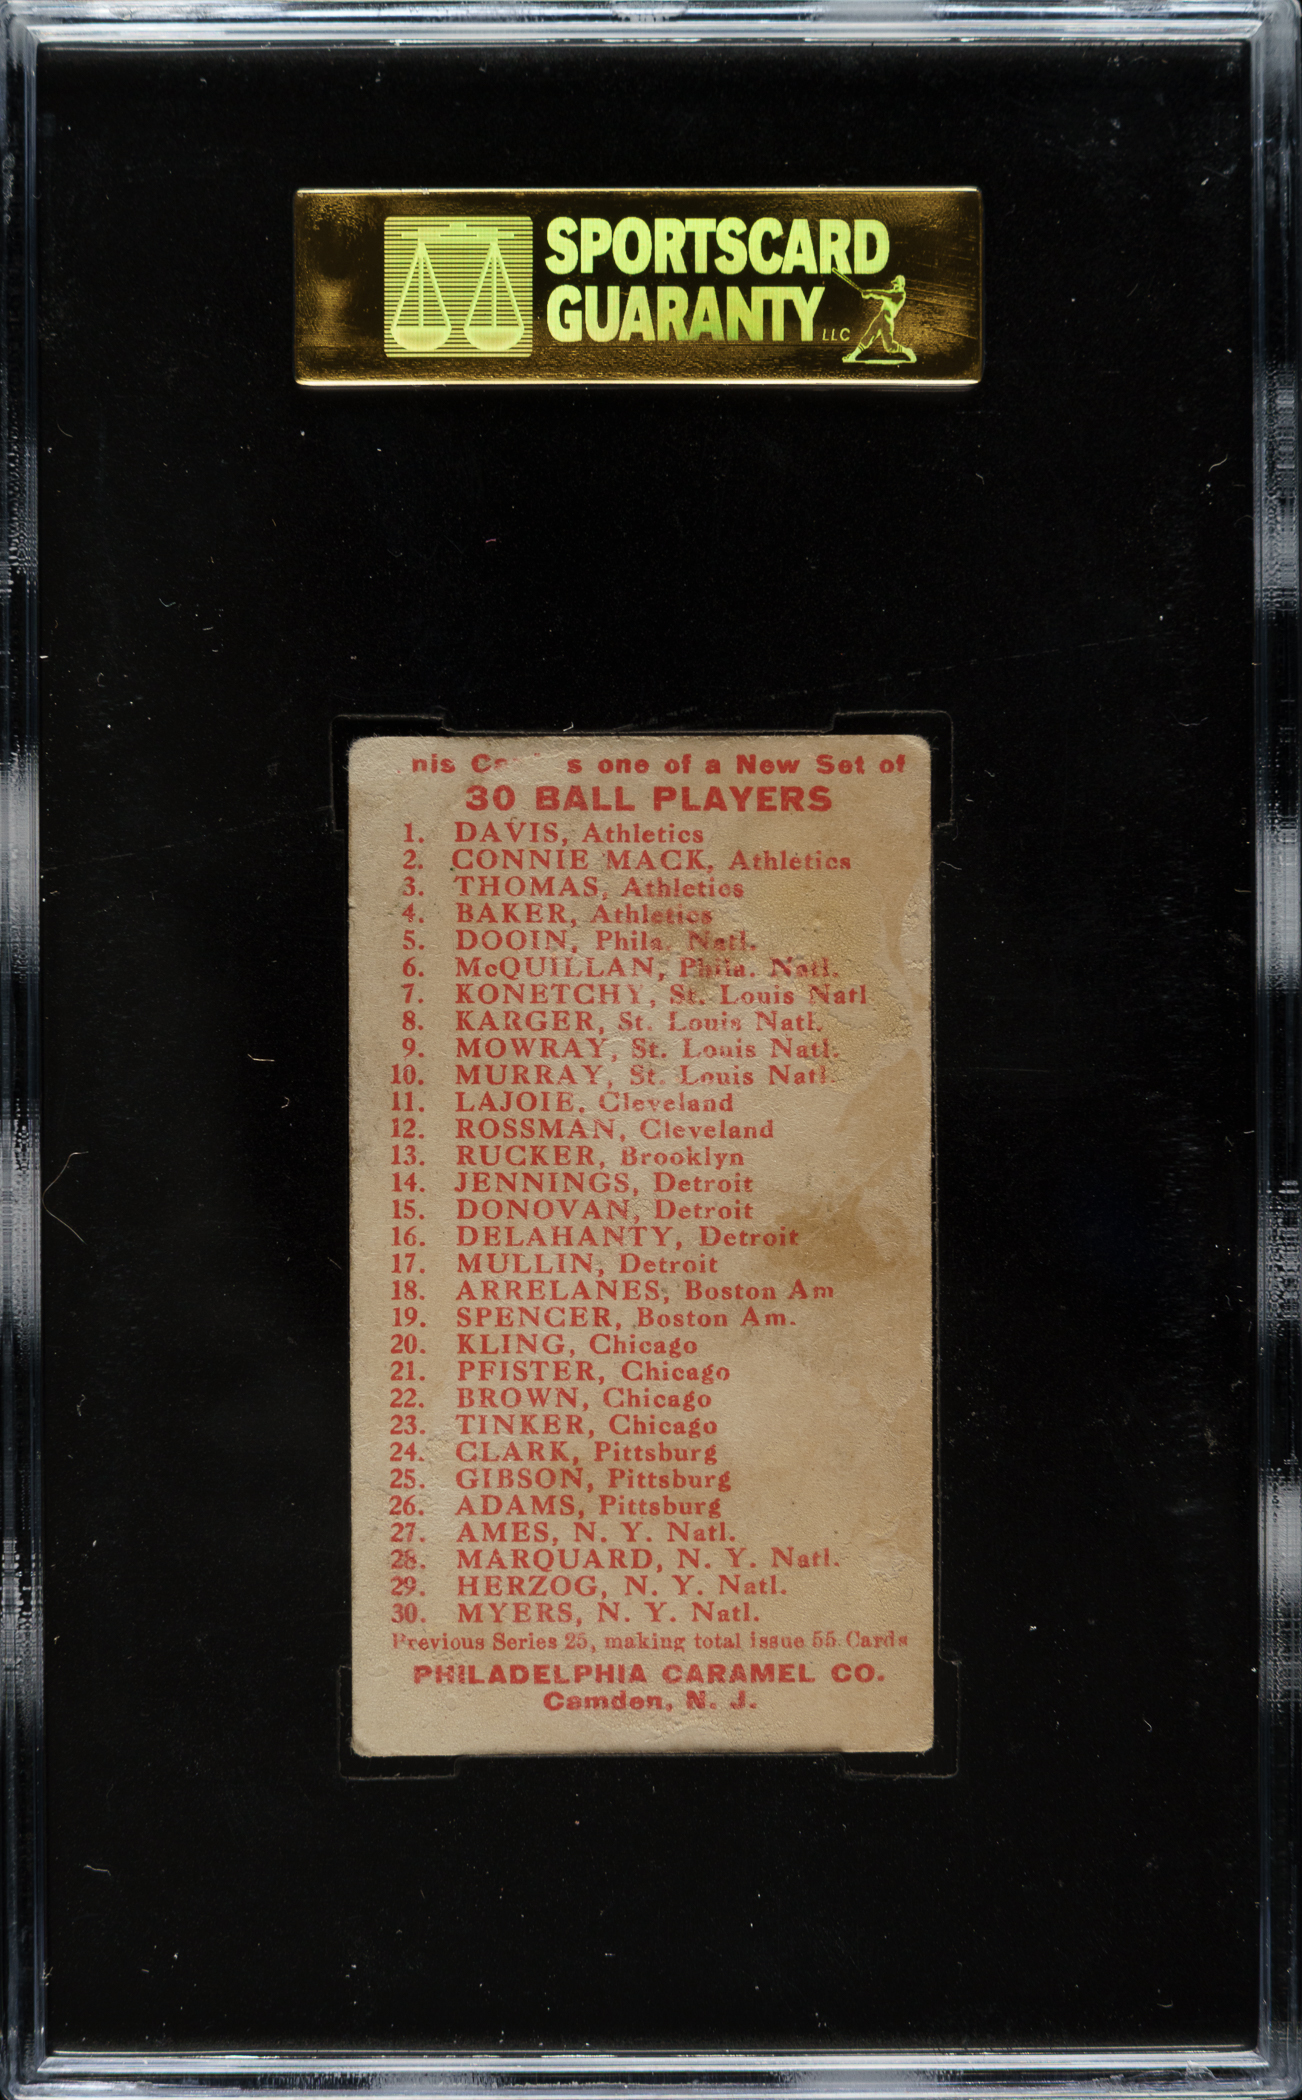 SPORTSCARD
GUARANTY LLC
nis s one of a New Set of
30 BALL PLAYERS
1. DAVIS, Athletics
2. CONNIE MACK, Athletics
3. THOMAS, Athletics
4. BAKER, Athletics
5. DOOIN, Phila. Natl.
6. McQUILLAN, Phila. Natl.
7. KONETCHY, St. Louis Natl
8. KARGER, St. Louis Natl.
9. MOWRAY, St. Louis Natl.
10. MURRAY, St. Louis Natl.
11. LAJOIE, Cleveland
12. ROSSMAN, Cleveland
13. RUCKER, Brooklyn
14. JENNINGS, Detroit
15. DONOVAN, Detroit
16. DELAHANTY, Detroit
17. MULLIN, Detroit
18. ARRELANES, Boston Am
19. SPENCER, Boston Am.
20. KLING, Chicago
21. PFISTER, Chicago
22. BROWN, Chicago
23. TINKER, Chicago
24. CLARK, Pittsburg
25. GIBSON, Pittsburg
26. ADAMS, Pittsburg
27. AMES, N. Y. Natl.
28. MARQUARD, N. Y. Natl.
29. HERZOG, N. Y. Natl.
30. MYERS, N. Y. Natl.
Previous Series 25, making total issue 55 Cards
PHILADELPHIA CARAMEL CO.
Camden, N. J.